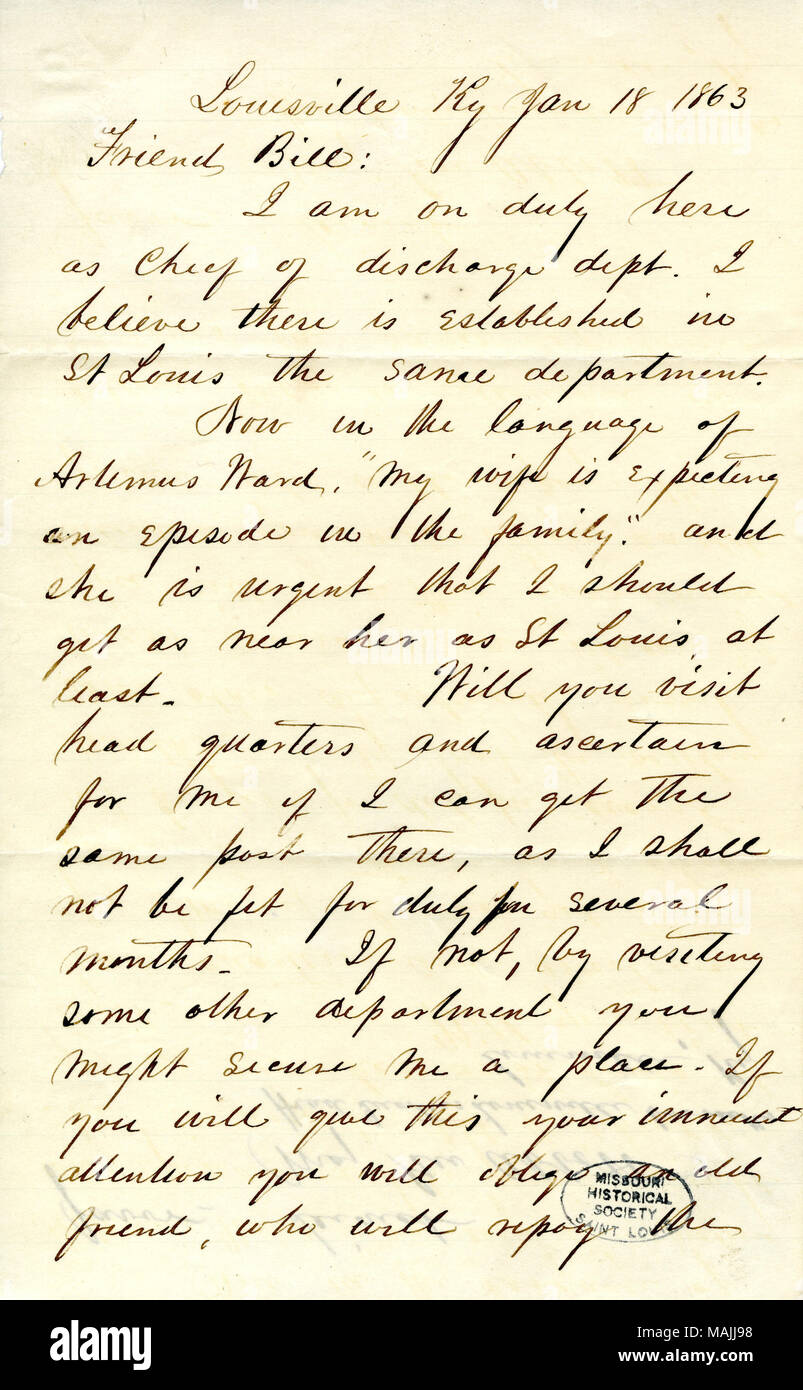 Louisville Ky Jan 18 1863
Friend Bill:
I am on duty here
as Chief of discharge dept. I
believe there is established in
St Louis the same department.
Now in the language of
Artemus Ward, "My wife is expecting
an Episode in the family". and
she is urgent that I should
get as near her as St Louis at
least. Will you visit
head quarters and ascertain
for me if I can get the
same post there, as I shall
not be fit for duty for several
months. If not, by visiting
some other department you
might secure me a place. If
you will give this your
attention you will oblige an old
friend, who will repay the
MISSOURI
HISTORICAL
SOCIETY
SAINT LOUIS
alamy
Image ID: MAJJ98
www.alamy.com